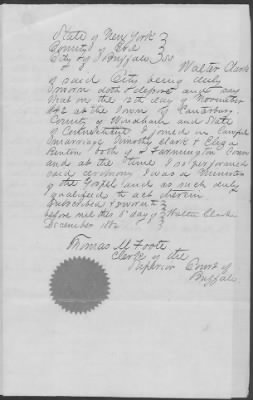 State of New York }
County of Erie }
City of Buffalo } ss.
Walter Clark
of said City being duly
sworn doth depose and say
that on the 5th day of November
at the Town of Canterbury
County of Windham and State
of Connecticut I joined in lawful
marriage Timothy Clark & Eliza
Kenton both of Farmington Conn
and at the time I so performed
said ceremony I was a Minister
of the Gospel and as such duly
qualified to act therein
Subscribed & sworn to }
before me this 8th day of } Walter Clark
December 1862
Thomas M Foote
Clerk of the
Superior Court of
Buffalo